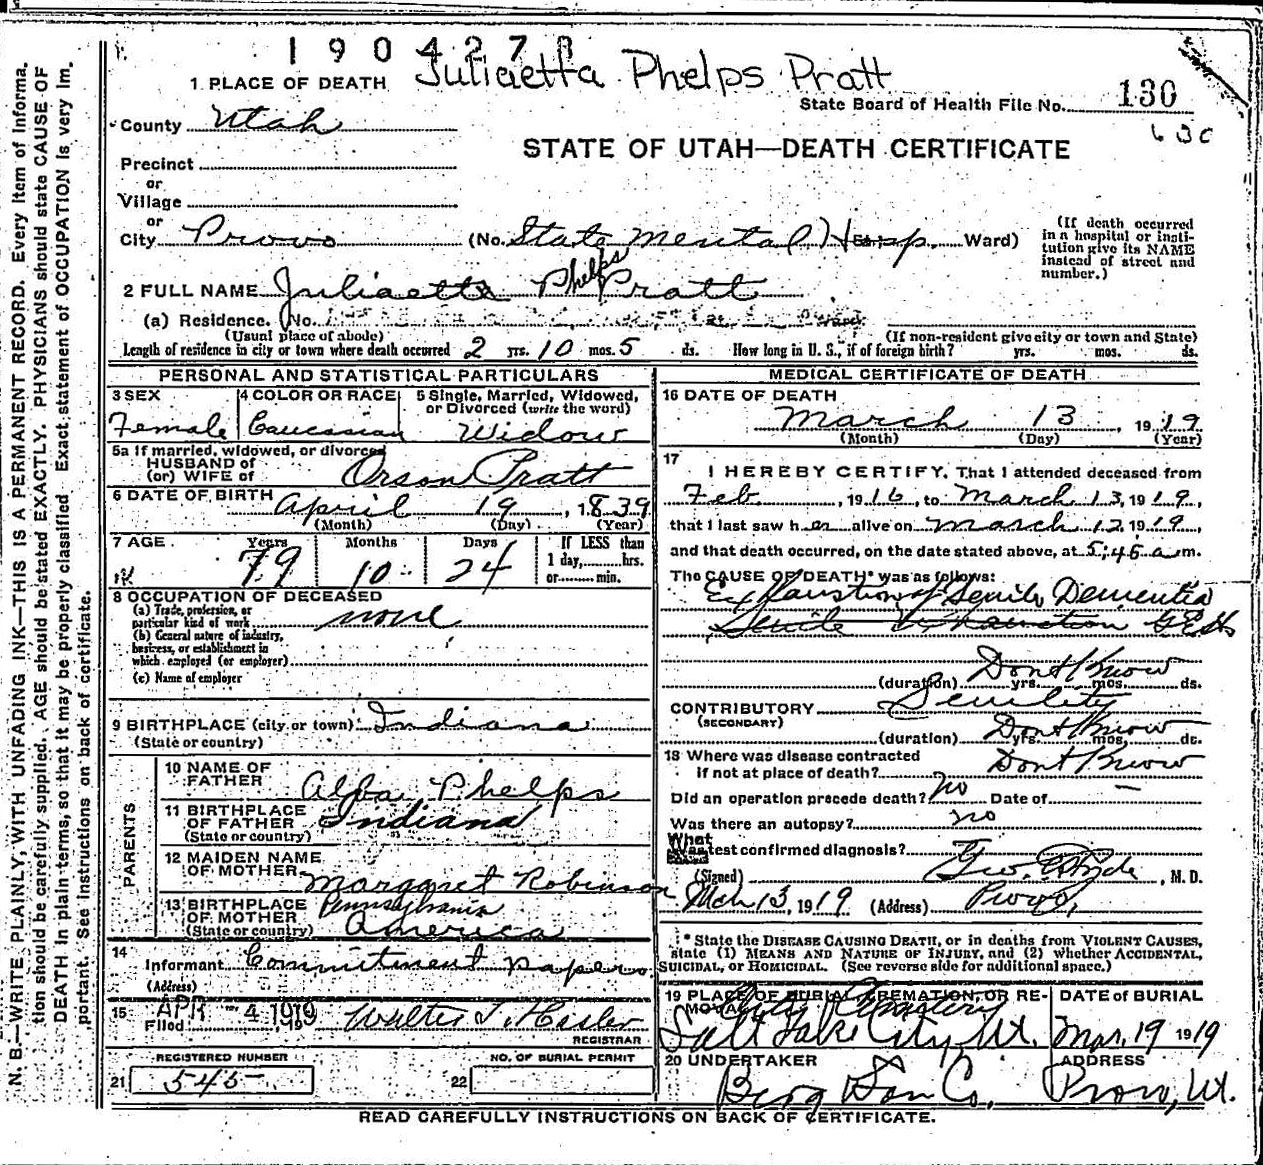 190427
Juliaetta Phelps Pratt
1 PLACE OF DEATH
State Board of Health File No. 130
County Utah
630
STATE OF UTAH—DEATH CERTIFICATE
Precinct
or
Village
or
City Provo (No. State Mental Hosp. Ward)
(If death occurred in a hospital or insti-
tution give its NAME
instead of street and
number.)
2 FULL NAME Juliaetta Phelps Pratt
(a) Residence. No.
(Usual place of abode)
(If non-resident give city or town and State)
Length of residence in city or town where death occurred 2 yrs. 10 mos. 5 ds. How long in U. S., if of foreign birth? yrs. mos. ds.
PERSONAL AND STATISTICAL PARTICULARS
3 SEX Female
4 COLOR OR RACE Caucasian
5 Single, Married, Widowed,
or Divorced (write the word)
Widow
5a If married, widowed, or divorced
HUSBAND of
(or) WIFE of Orson Pratt
6 DATE OF BIRTH April 19, 1839
(Month) (Day) (Year)
7 AGE Years 79 Months 10 Days 24
If LESS than
1 day, hrs.
or min.
8 OCCUPATION OF DECEASED
(a) Trade, profession, or
particular kind of work none
(b) General nature of industry,
business, or establishment in
which employed (or employer)
(c) Name of employer
9 BIRTHPLACE (city or town) Indiana
(State or country)
PARENTS
10 NAME OF
FATHER Alba Phelps
11 BIRTHPLACE
OF FATHER Indiana
(State or country)
12 MAIDEN NAME
OF MOTHER Margaret Robinson
13 BIRTHPLACE
OF MOTHER Pennsylvania
(State or country) America
14
Informant Commitment papers
(Address)
15
Filed APR -4 1919 Walter T. Hasler
REGISTRAR
REGISTERED NUMBER
21 545
NO. OF BURIAL PERMIT
22
MEDICAL CERTIFICATE OF DEATH
16 DATE OF DEATH
March 13, 1919
(Month) (Day) (Year)
17
I HEREBY CERTIFY, That I attended deceased from
Feb, 1916, to March 13, 1919,
that I last saw her alive on March 12, 1919,
and that death occurred, on the date stated above, at 5:45 a m.
The CAUSE OF DEATH* was as follows:
Exhaustion of Senile Dementia
Senile Exhaustion
Dont Know
(duration) yrs. mos. ds.
CONTRIBUTORY Senility
(SECONDARY)
(duration) Dont Know yrs. mos. ds.
18 Where was disease contracted
if not at place of death? Dont Know
Did an operation precede death? no Date of —
Was there an autopsy? no
What test confirmed diagnosis?
(Signed) Geo. E. Hyde, M. D.
Mch 13, 1919 (Address) Provo,
* State the DISEASE CAUSING DEATH, or in deaths from VIOLENT CAUSES,
state (1) MEANS AND NATURE OF INJURY, and (2) whether ACCIDENTAL,
SUICIDAL, or HOMICIDAL. (See reverse side for additional space.)
19 PLACE OF BURIAL, CREMATION, OR RE-
MOVAL City Cemetery
Salt Lake City, Ut.
DATE OF BURIAL
Mar. 19 1919
20 UNDERTAKER
Berg Son Co,
ADDRESS
Provo, Ut.
READ CAREFULLY INSTRUCTIONS ON BACK OF CERTIFICATE.
N. B.—WRITE PLAINLY, WITH UNFADING INK—THIS IS A PERMANENT RECORD. Every item of informa-
tion should be carefully supplied. AGE should be stated EXACTLY. PHYSICIANS should state CAUSE OF
DEATH in plain terms, so that it may be properly classified. Exact statement of OCCUPATION is very im-
portant. See instructions on back of certificate.